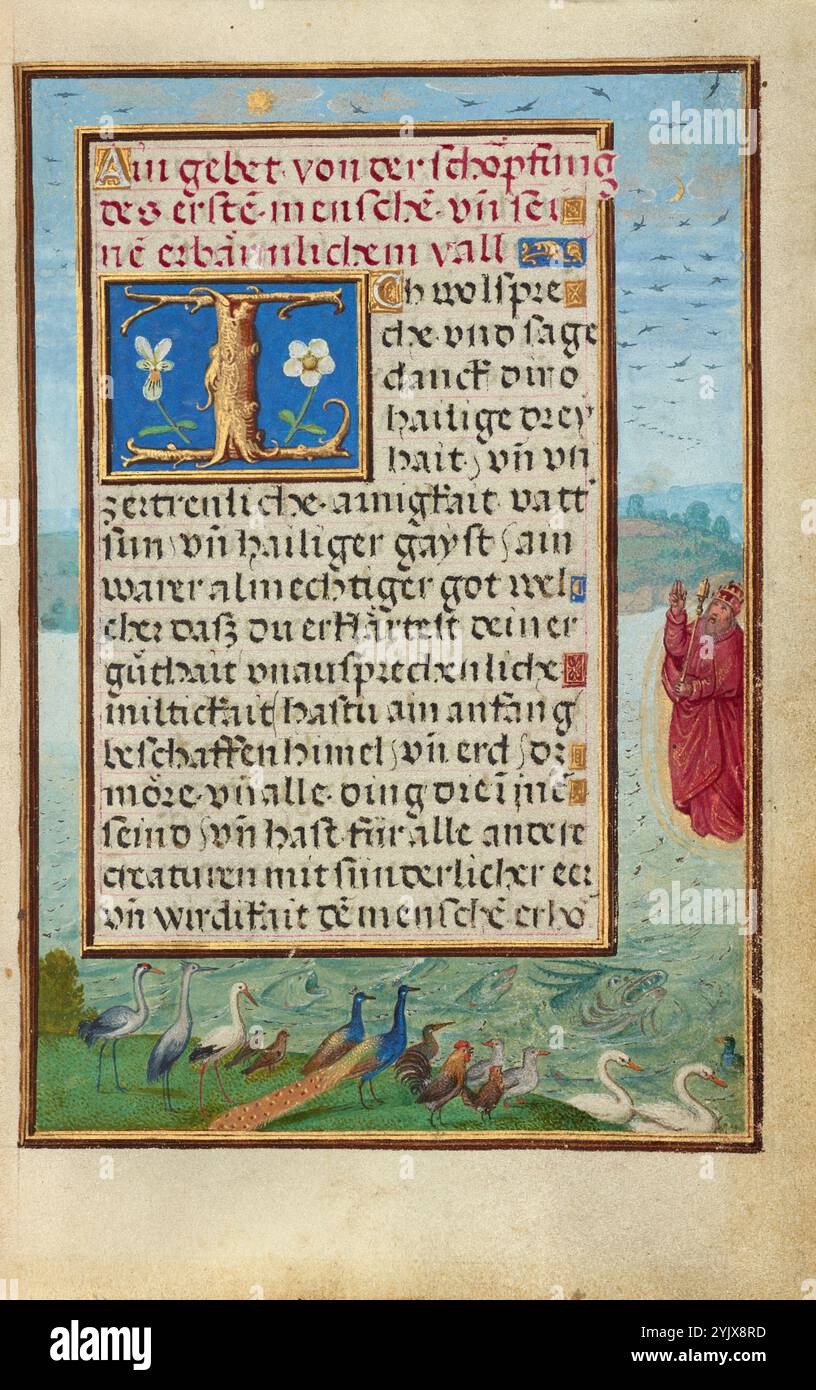 Ain gebet · von der schöpfung
des erstē · menschē · vn̄ sei
nē erbärmlichem vall
Ich wolspre
che · vnd sage
danck dir o
hailige drey
hait / vn̄ vn
zertrenliche · ainigkait · vatt
sun / vn̄ hailiger gayst / ain
warer almechtiger got wel
cher dasz du erklärtest deiner
gůthait vnaussprechenliche ·
miltickait / hastu am anfang
beschaffen himel / vn̄ erd / dz
möre · vn̄ alle · ding dre in jnē
seind / vn̄ hast · für alle andere
creaturen mit sunderlicher eer
vn̄ wirdikait dē menschē erhö
alamy
alamy
Image ID: 2YJX8RD
www.alamy.com